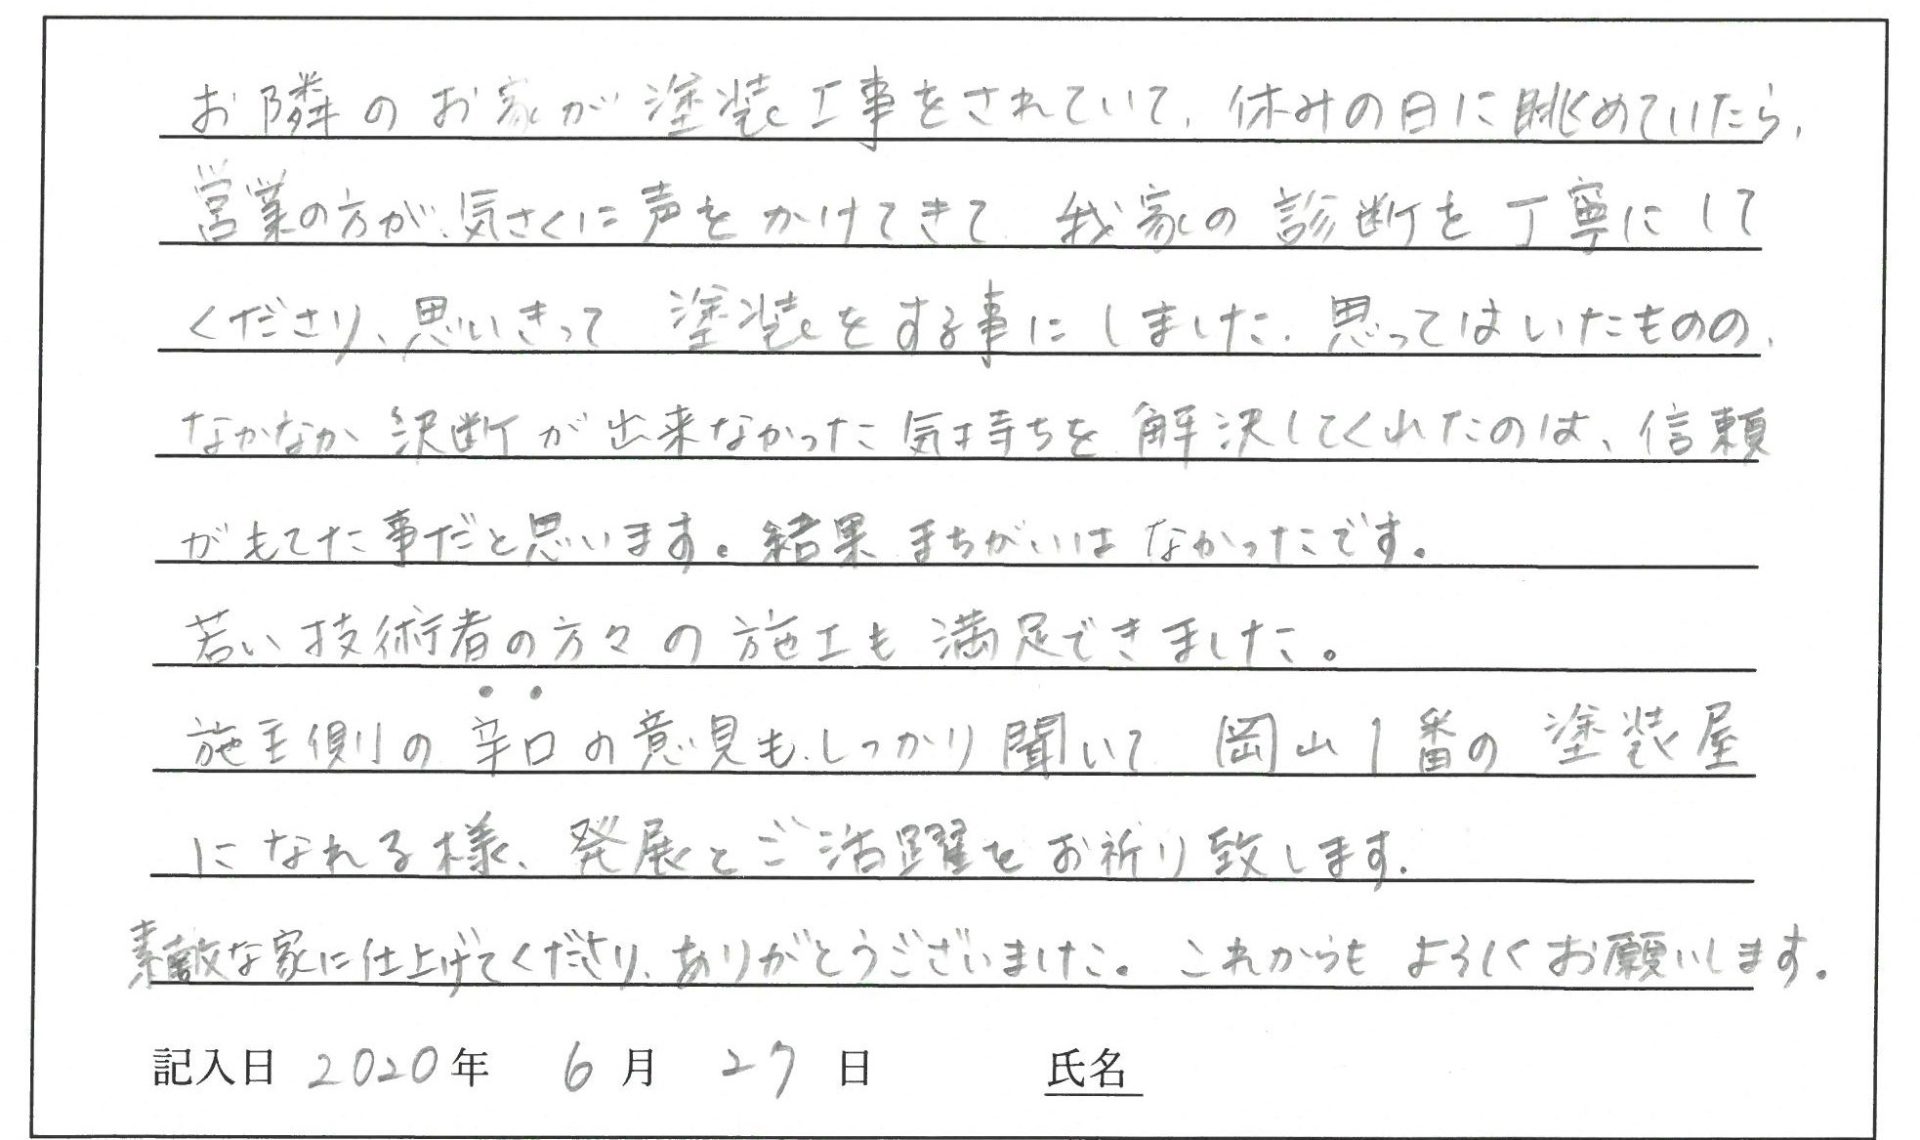 お隣のお家が塗装工事をされていて、休みの日に眺めていたら、
営業の方が、気さくに声をかけてきて 我家の診断を丁寧にして
くださり、思いきって 塗装をする事にしました。思ってはいたものの、
なかなか決断が出来なかった気持ちを解決してくれたのは、信頼
がもてた事だと思います。結果 まちがいは なかったです。
若い技術者の方々の施工も満足できました。
施主側の辛口の意見も、しっかり聞いて 岡山1番の塗装屋
になれる様、発展とご活躍をお祈り致します。
素敵な家に仕上げてくださり、ありがとうございました。これからも よろしくお願いします。
記入日 2020年 6月 27日 氏名